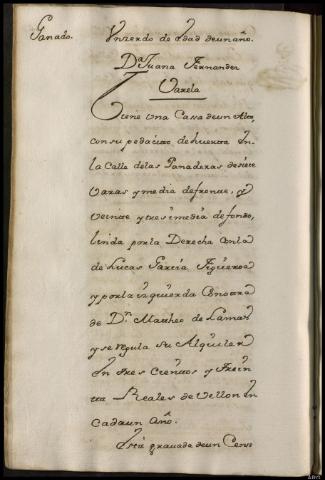 Ganado. Unzerdo de Edad deunaño.
Dª Juana Fernandez
Varela
Tiene Una Cassa deun Alto,
con su pedacito de huerta En
la Calle delas Panaderas desiete
Varas y media defrente, y
veinte y tres i media de fondo,
linda porla Derecha Conla
de Lucas Garcia Figueroa
y porla izquierda Conotra
de Dn. Mattheo de Lamas
y se regula su Alquiler
En tres Cientos y Trein
tta Reales de Vellon En
cadaun Año.
Està gravada deun Cens